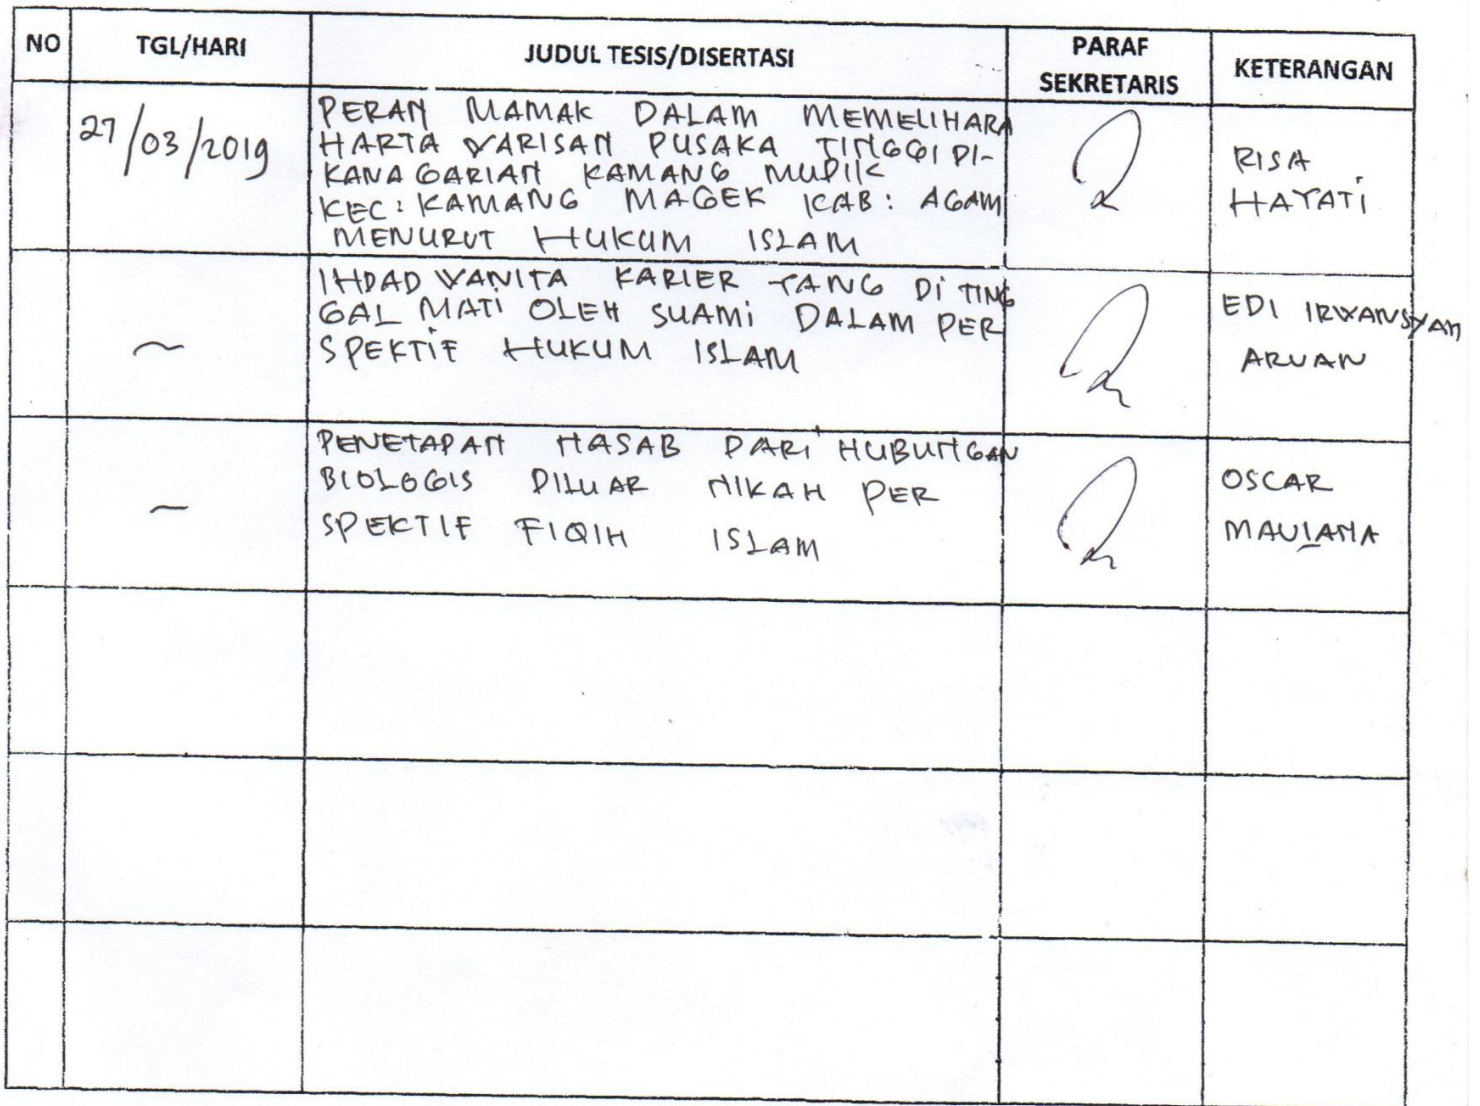 NO TGL/HARI JUDUL TESIS/DISERTASI PARAF SEKRETARIS KETERANGAN
27/03/2019
PERAN MAMAK DALAM MEMELIHARA
HARTA WARISAN PUSAKA TINGGI DI-
KANAGARIAN KAMANG MUDIK
KEC: KAMANG MAGEK KAB: AGAM
MENURUT HUKUM ISLAM
RISA
HAYATI
~
IHDAD WANITA KARIER YANG DI TING
GAL MATI OLEH SUAMI DALAM PER
SPEKTIF HUKUM ISLAM
EDI IRWANSYAH
ARUAN
~
PENETAPAN NASAB DARI HUBUNGAN
BIOLOGIS DILUAR NIKAH PER
SPEKTIF FIQIH ISLAM
OSCAR
MAULANA